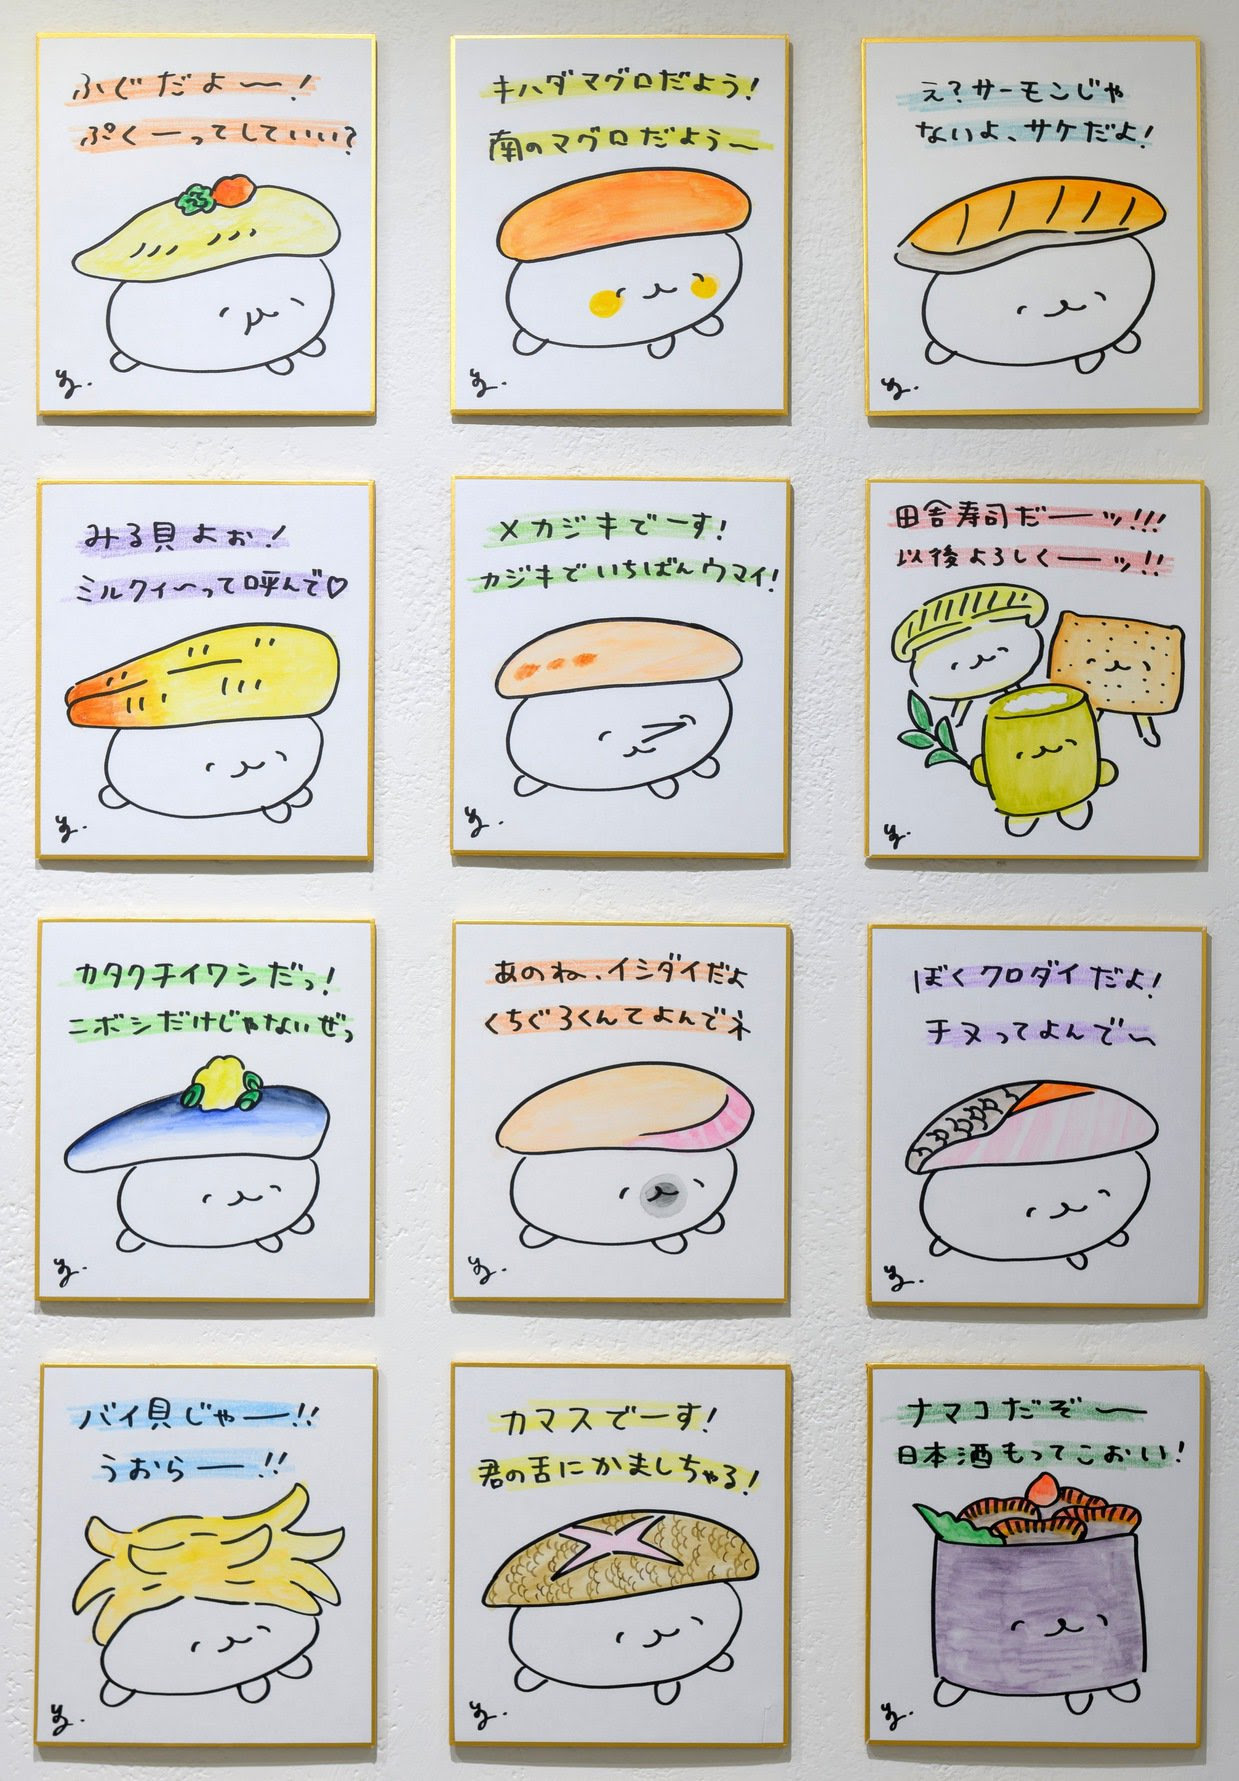 ふぐだよ〜！
ぷくーってしていい？
キハダマグロだよう！
南のマグロだよう〜
え？サーモンじゃ
ないよ、サケだよ！
みる貝よぉ！
ミルクィ〜って呼んで♡
メカジキでーす！
カジキでいちばんウマイ！
田舎寿司だーッ!!!
以後よろしくーッ!!
カタクチイワシだっ！
ニボシだけじゃないぜっ
あのね、イシダイだよ
くちぐろくんてよんでネ
ぼくクロダイだよ！
チヌってよんで〜
バイ貝じゃー!!
うおらー!!
カマスでーす！
君の舌にかましちゃる！
ナマコだぞ〜
日本酒もってこおい！